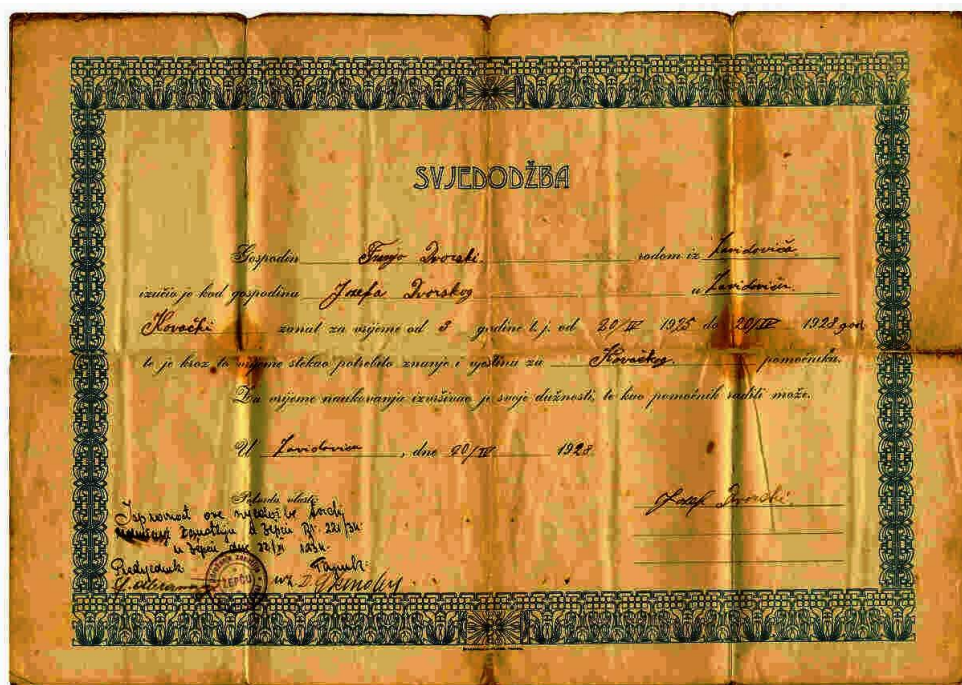 SVJEDODŽBA
Gospodin Franjo Dvorski rodom iz Zavidovića
izučio je kod gospodina Jozefa Dvorskog u Zavidovići
Kovački zanat za vrijeme od 3 godine t. j. od 20/IV 1925 do 20/IV 1928 god
te je kroz to vrijeme stekao potrebito znanje i vještinu za Kovačkog pomoćnika.
Za vrijeme naukovanja izvršivao je svoje dužnosti, te kao pomoćnik raditi može.
U Zavidovića, dne 20/IV 1928
Potvrda vlasti:
Jozef Dvorski
Ispravnost ove
u Žepču Br. 22/34
u Žepču dne
Predsjednik
Tajnik
ŽEPČU